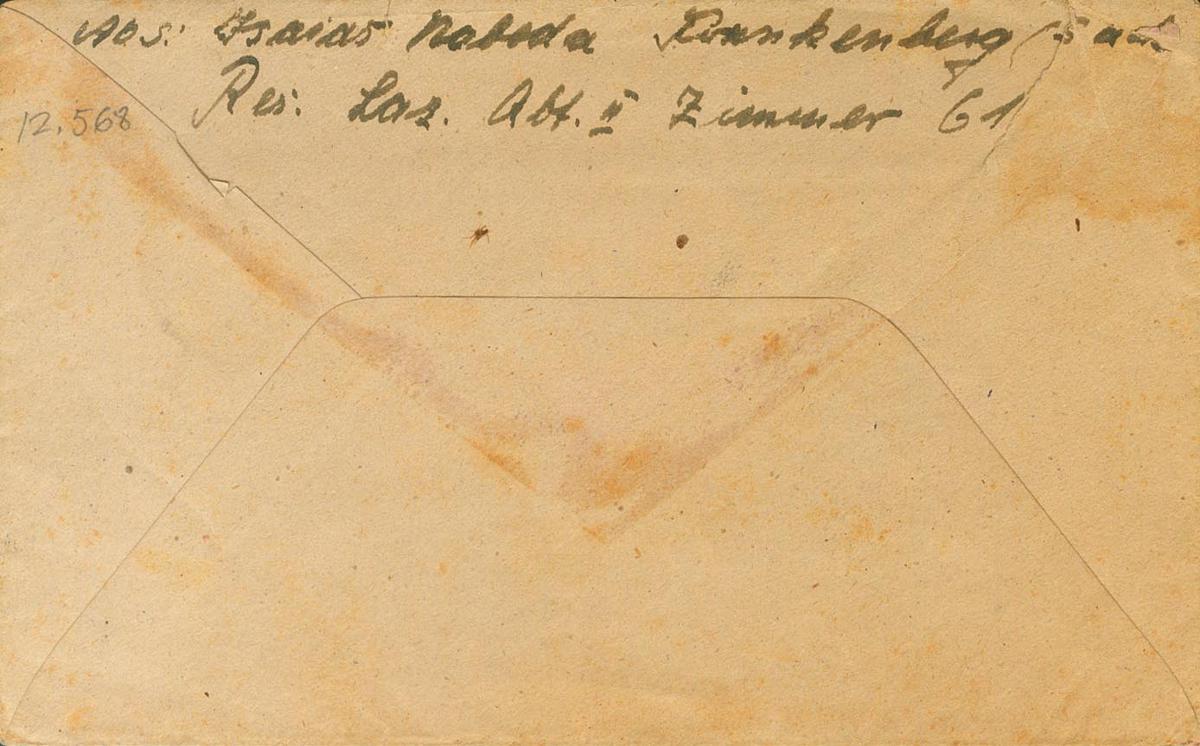 Abs: Isaias Nobeda Frankenberg / Sa
Res. Laz. Abt. II Zimmer 61
12.568